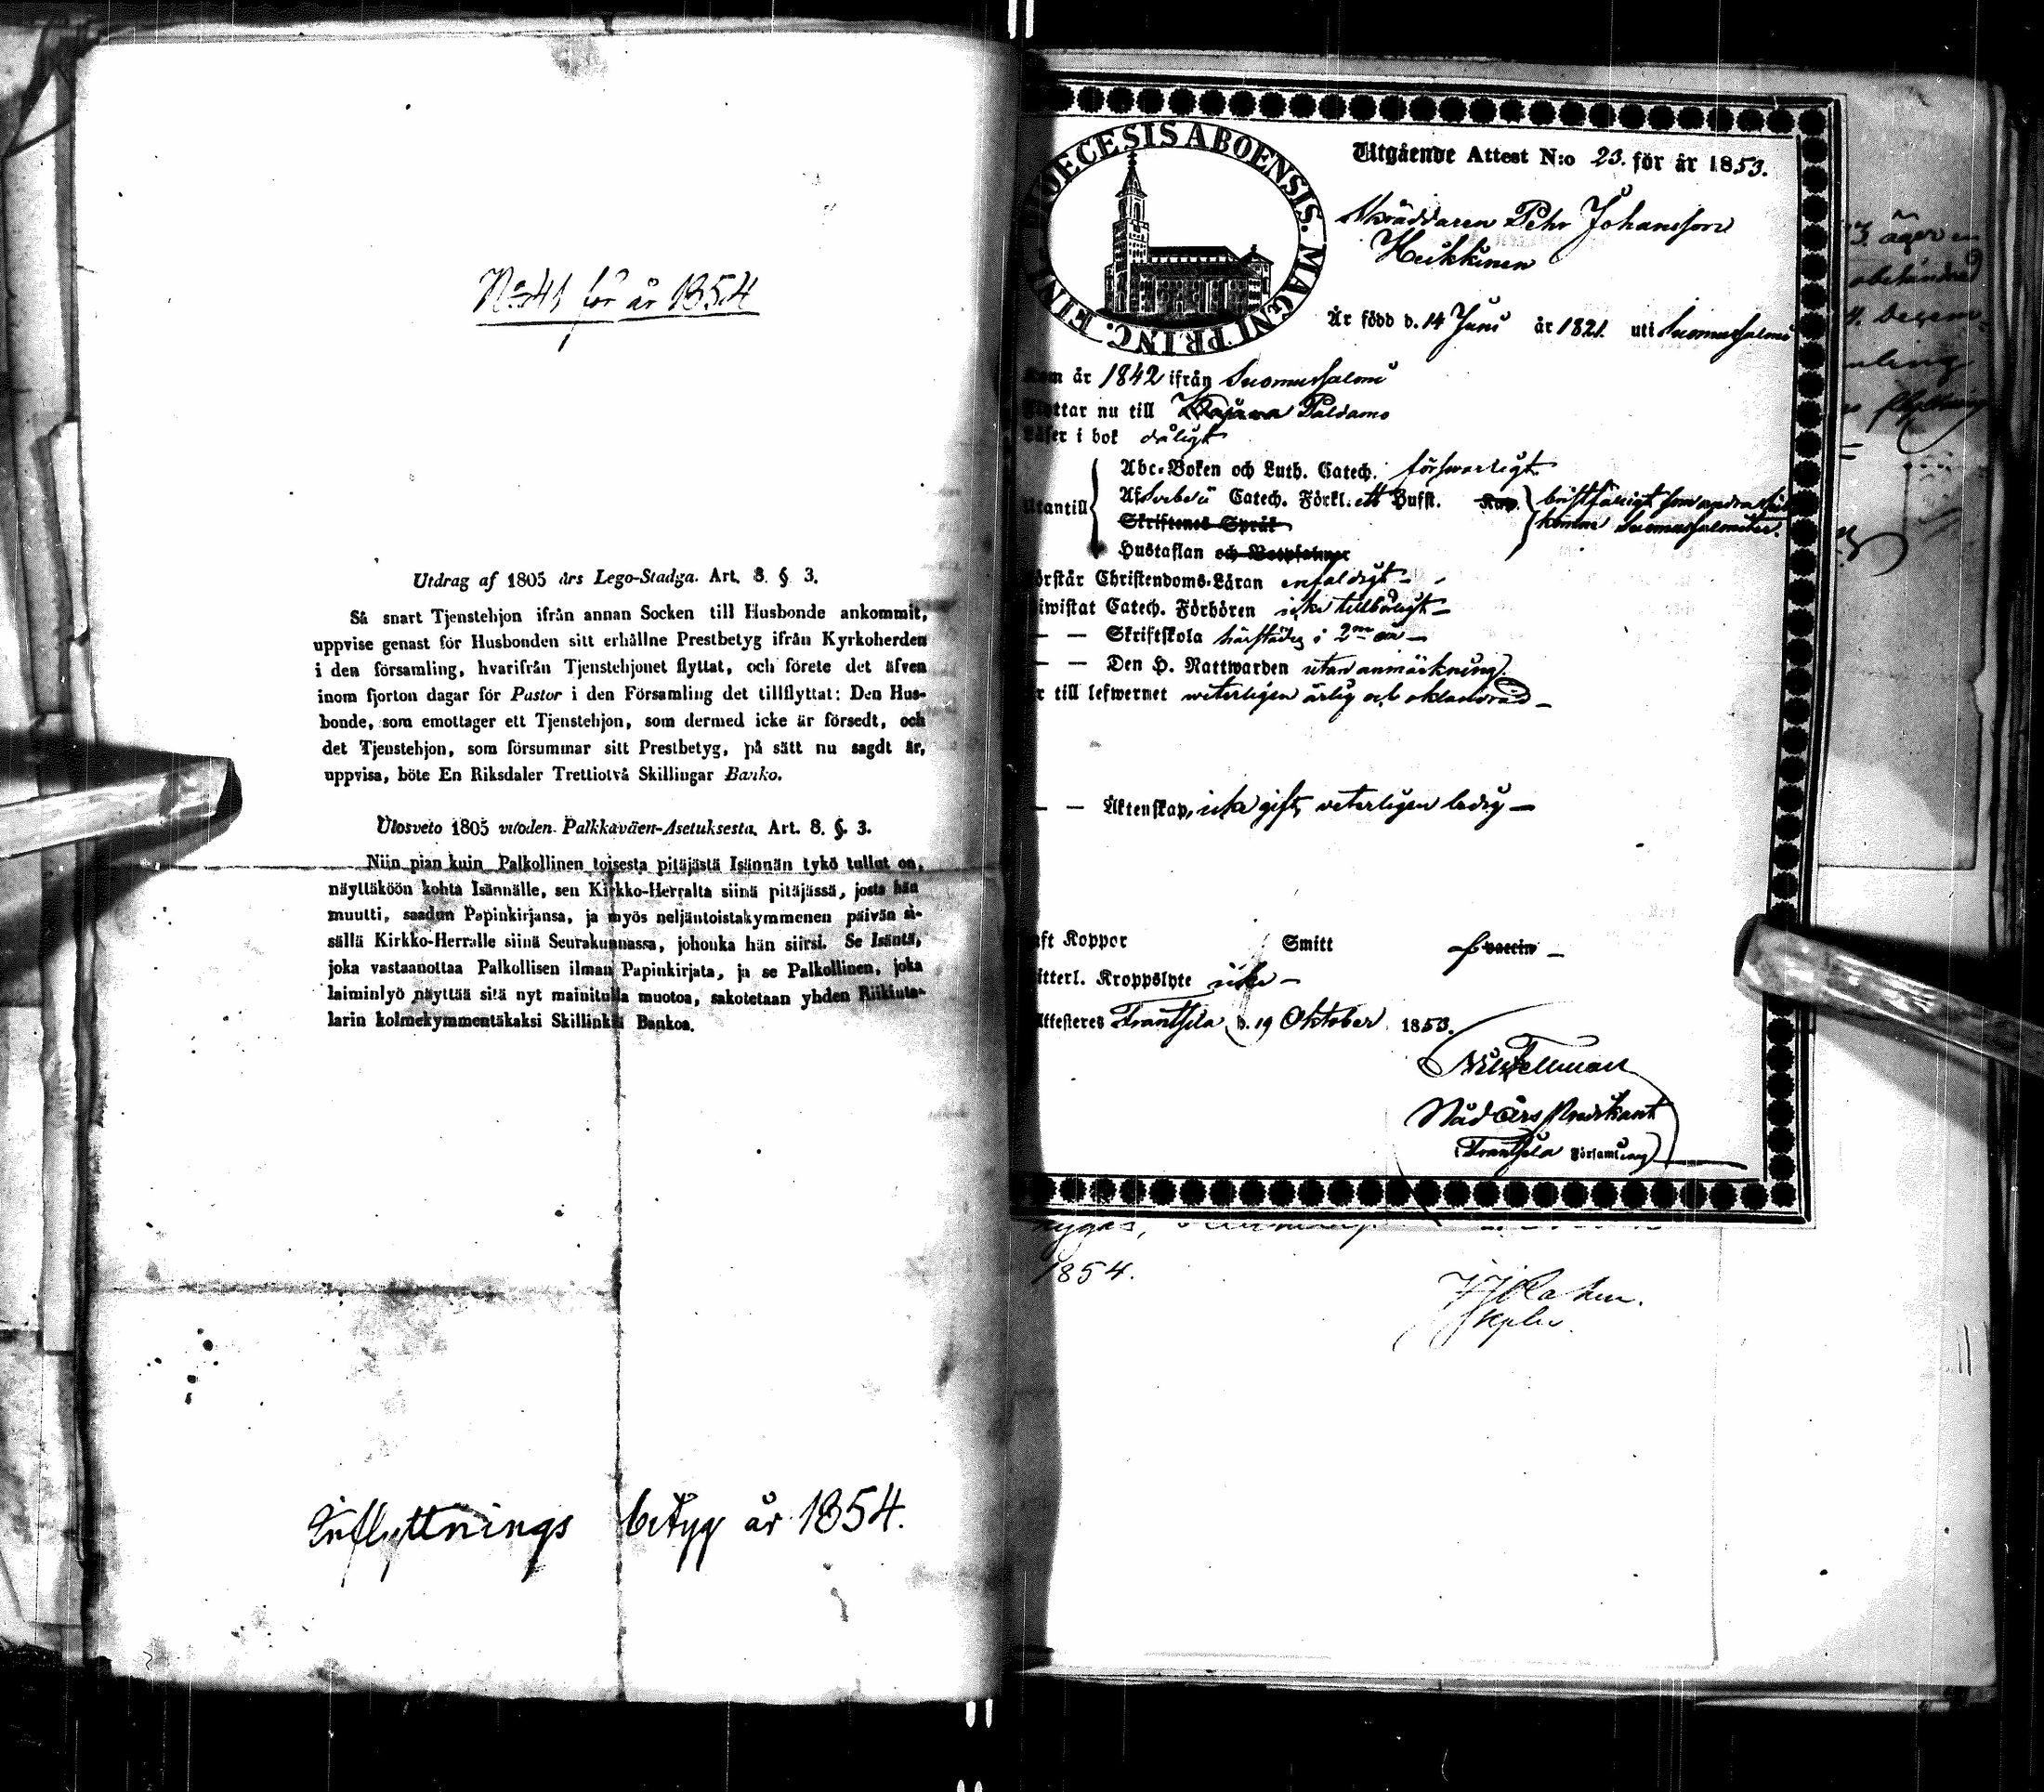 No 41 för år 1854
Utdrag af 1805 års Lego-Stadga. Art. 8. § 3.
Så snart Tjenstehjon ifrån annan Socken till Husbonde ankommit,
uppvise genast för Husbonden sitt erhållne Prestbetyg ifrån Kyrkoherden
i den församling, hvarifrån Tjenstehjonet flyttat, och förete det äfven
inom fjorton dagar för Pastor i den Församling det tillflyttat: Den Hus-
bonde, som emottager ett Tjenstehjon, som dermed icke är försedt, och
det Tjenstehjon, som försummar sitt Prestbetyg, på sätt nu sagdt är,
uppvisa, böte En Riksdaler Trettiotvå Skillingar Banko.
Ulosveto 1805 vuoden Palkkaväen-Asetuksesta, Art. 8. §. 3.
Niin pian kuin Palkollinen toisesta pitäjästä Isännän tykö tullut on,
näyttäköön kohta Isännälle, sen Kirkko-Herralta siinä pitäjässä, josta hän
muutti, saadun Papinkirjansa, ja myös neljäntoistakymmenen päivän si-
sällä Kirkko-Herralle siinä Seurakunnassa, johonka hän siirsi. Se Isäntä,
joka vastaanottaa Palkollisen ilman Papinkirjata, ja se Palkollinen, joka
laiminlyö näyttää sitä nyt mainitulla muotoa, sakotetaan yhden Riikinta-
larin kolmekymmentäkaksi Skillinkiä Bankoa.
Inflyttnings betyg år 1854.
DIOECESIS ABOENSIS. MAGNI PRINC. FINL.
Utgående Attest N:o 23. för år 1853.
Skräddaren Pehr Johansson
Heikkinen
Är född d. 14 Juni år 1821. uti Suomussalmi
Kom år 1842 ifrån Suomussalmi
Flyttar nu till Kajana Paldamo
Läser i bok dåligt
Utantill
Abc-Boken och Luth. Catech. försvarligt
Af Svebelii Catech. Förkl. ett Hufst. Kap. bristfälligt som andra
komne Suomussalmiter.
Skriftenes Språk
Hustaflan och Botpsalmer
Förstår Christendoms-Läran enfaldigt
Biwistat Catech. Förhören icke tillbörligt
— — Skriftskola härstädes i 2ne år
— — Den H. Nattwarden utan anmärkning.
Är till lefwernet veterligen ärlig och oklandrad
— — Äktenskap, icke gift, veterligen ledig
Haft Koppor Smitt vaccin
Witterl. Kroppslyte icke
Attesteres Frantsila d. 19 Oktober 1853.
Nils Fellman
Nåd Års Predikant
Frantsila Församling
1854.
3. äger en
4.